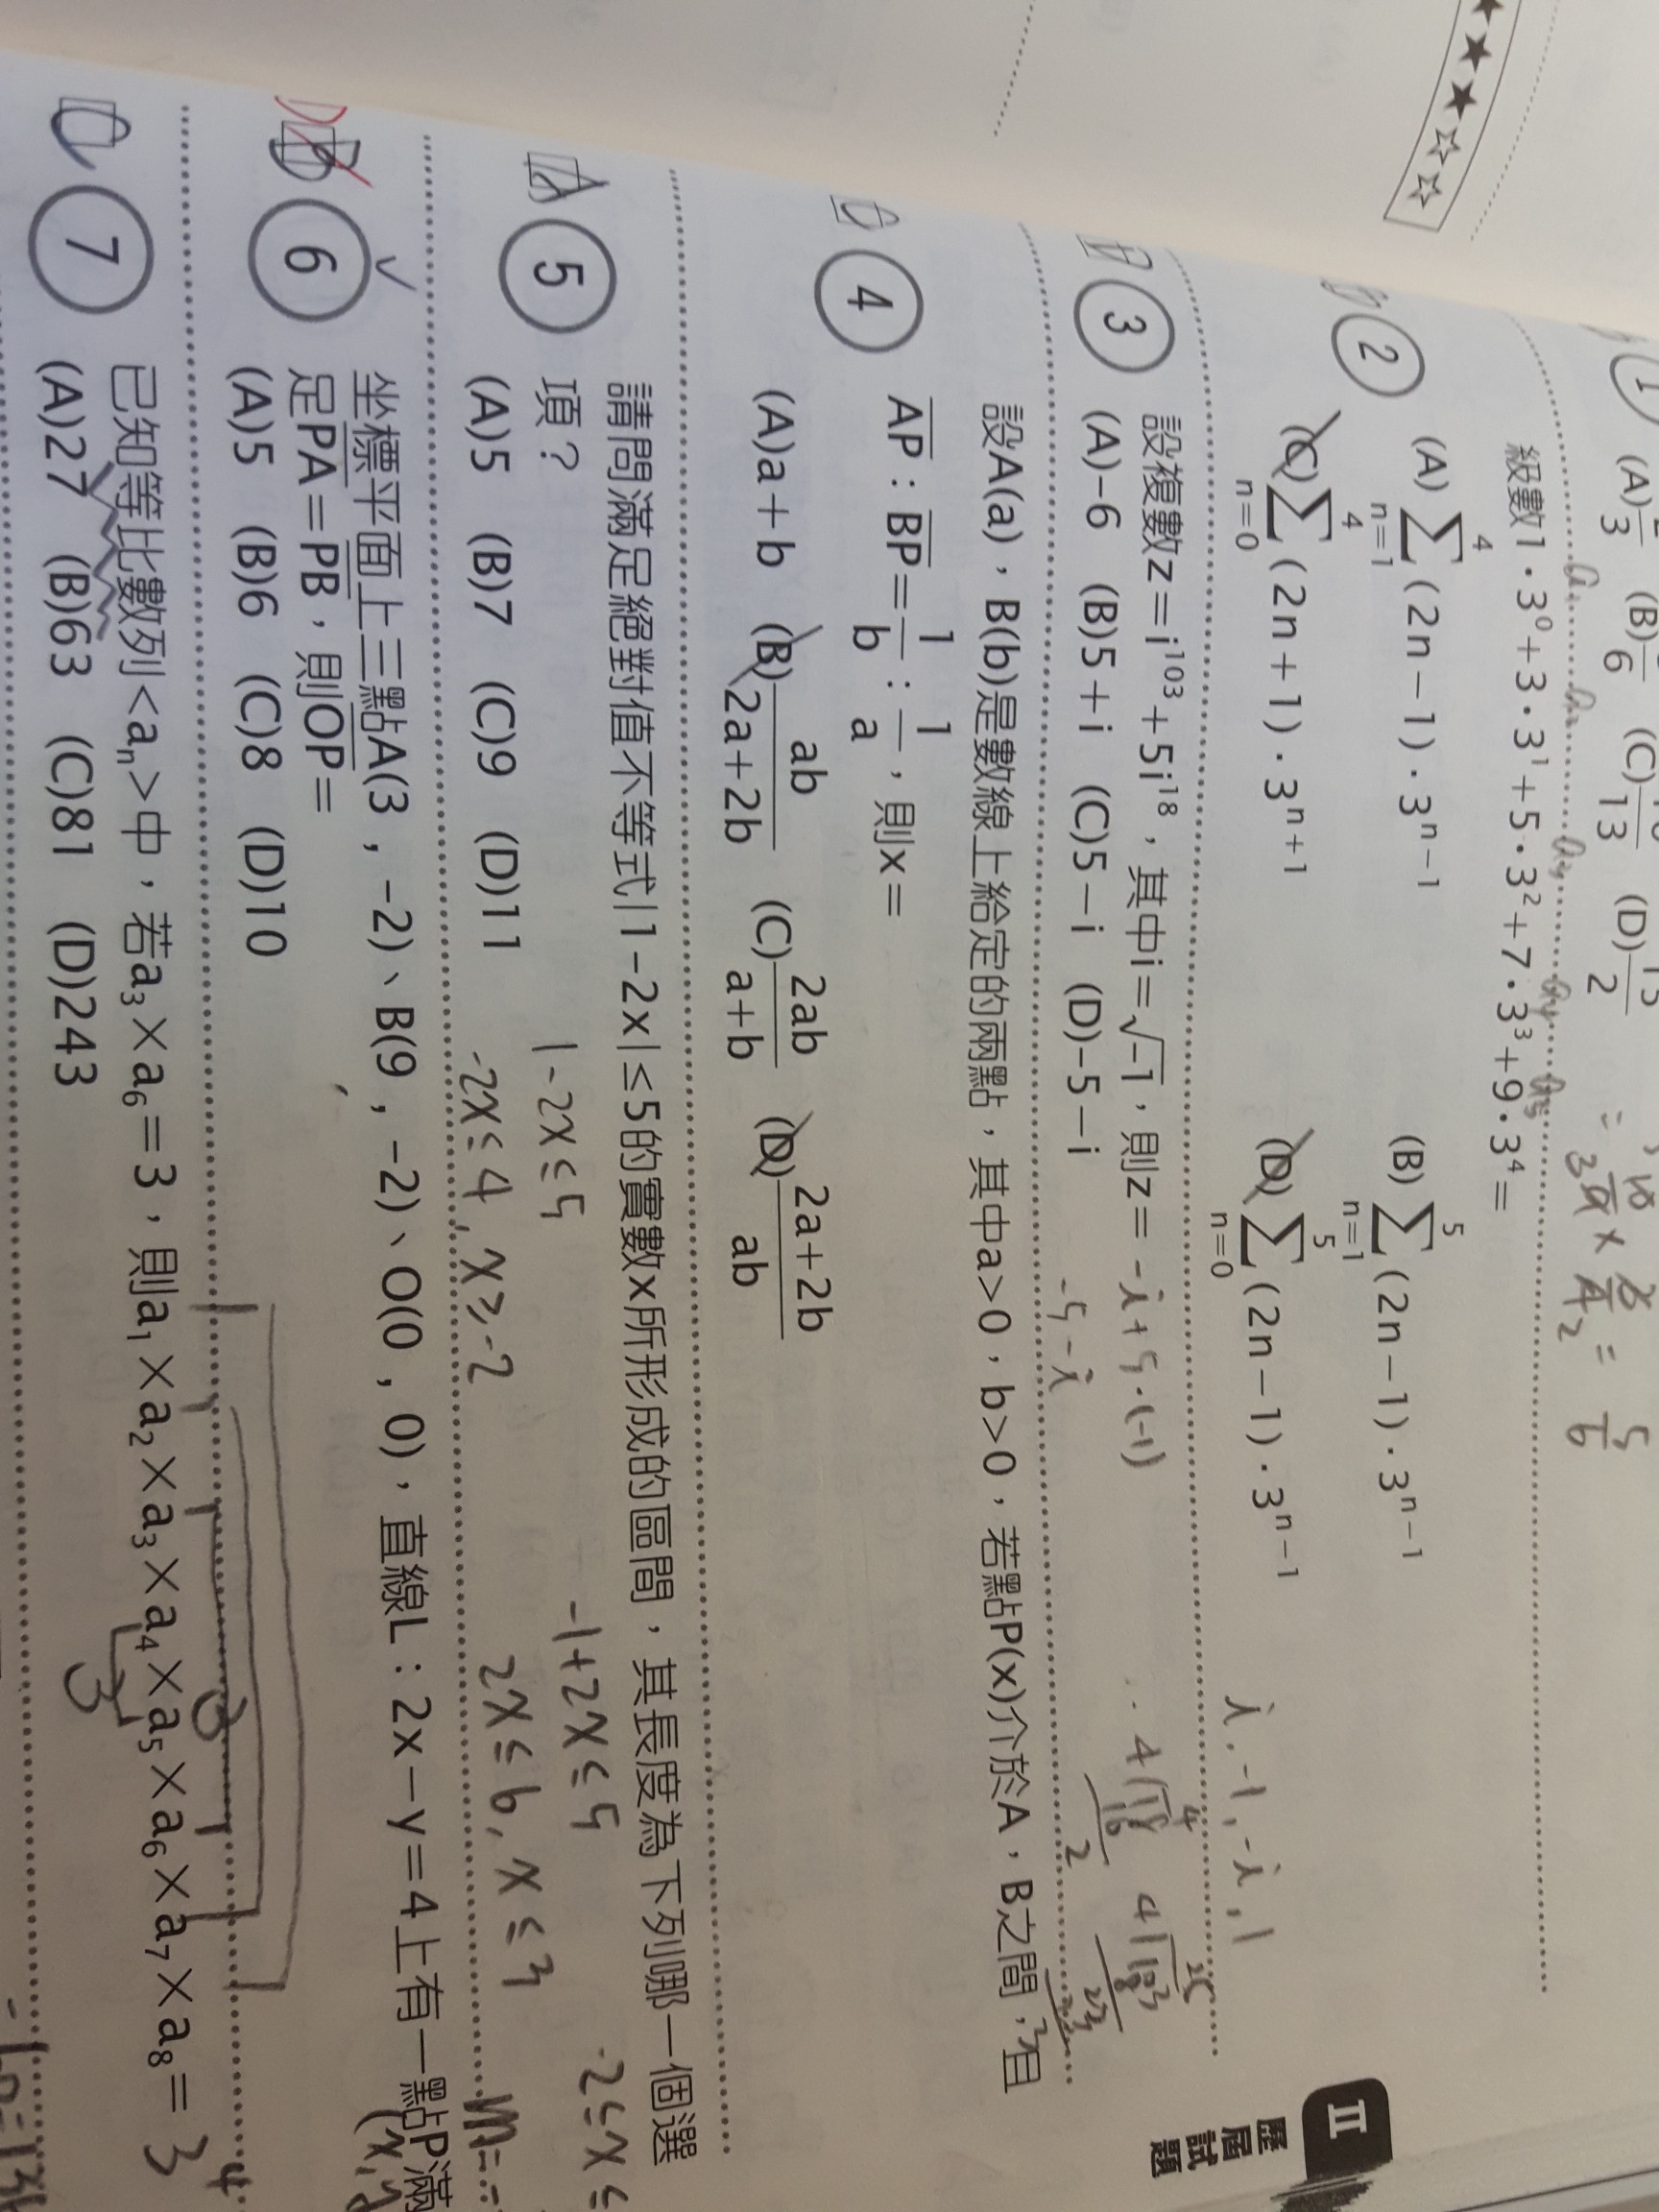 ★★★☆☆
II
歷屆試題
1 (A) (B) (C) (D)
= 5/6
級數1·3⁰+3·3¹+5·3²+7·3³+9·3⁴=
2 (A) ∑_{n=1}^{4} (2n−1)·3ⁿ⁻¹ (B) ∑_{n=1}^{5} (2n−1)·3ⁿ⁻¹
(C) ∑_{n=0}^{4} (2n+1)·3ⁿ⁺¹ (D) ∑_{n=0}^{5} (2n−1)·3ⁿ⁻¹
i, -1, -i, 1
設複數z=i¹⁰³+5i¹⁸,其中i=√-1,則z= -i+5·(-1)
3 (A)-6 (B)5+i (C)5−i (D)-5−i
-5-i
設A(a),B(b)是數線上給定的兩點,其中a>0,b>0,若點P(x)介於A,B之間,且
4 AP:BP=1/b:1/a,則x=
(A)a+b (B)ab/(2a+2b) (C)2ab/(a+b) (D)(2a+2b)/ab
請問滿足絕對值不等式|1−2x|≤5的實數x所形成的區間,其長度為下列哪一個選
A 5 項?
1-2x≤5 -1+2x≤5 -2≤x≤
(A)5 (B)7 (C)9 (D)11
-2x≤4, x≥-2 2x≤6, x≤3
坐標平面上三點A(3,-2)、B(9,-2)、O(0,0),直線L:2x−y=4上有一點P滿
6 足PA=PB,則OP=
(A)5 (B)6 (C)8 (D)10
已知等比數列<aₙ>中,若a₃×a₆=3,則a₁×a₂×a₃×a₄×a₅×a₆×a₇×a₈= 3⁴
C 7 (A)27 (B)63 (C)81 (D)243
3